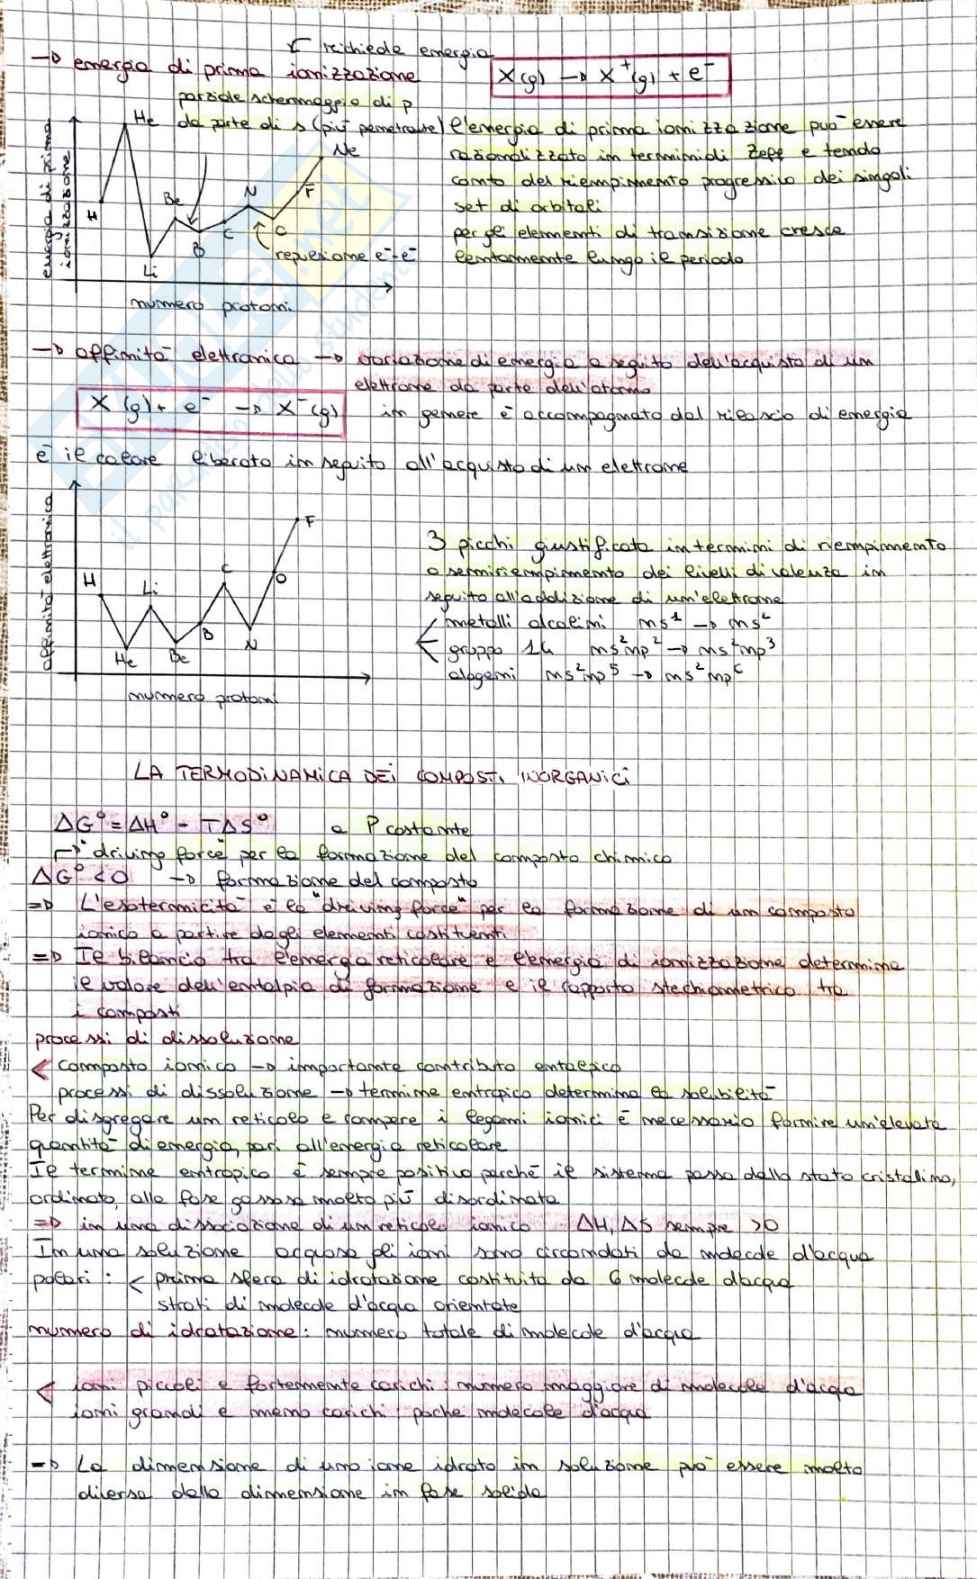 richiede energia
→ energia di prima ionizzazione
X(g) → X⁺(g) + e⁻
parziale schermaggio di p
da parte di s (più penetrante)
l'energia di prima ionizzazione può essere
razionalizzato in termini di Zeff e tendo
conto del riempimento progressivo dei singoli
set di orbitali
per gli elementi di transizione cresce
lentamente lungo il periodo
energia di prima
ionizzazione
H
He
Li
Be
B
C
N
O
F
Ne
repulsione e⁻-e⁻
numero protoni
→ affinità elettronica → variazione di energia a seguito dell'acquisto di un
elettrone da parte dell'atomo
X(g) + e⁻ → X⁻(g)
in genere è accompagnato dal rilascio di energia
è il calore liberato in seguito all'acquisto di un elettrone
affinità elettronica
H
He
Li
Be
B
C
N
O
F
numero protoni
3 picchi giustificata in termini di riempimento
o semiriempimento dei livelli di valenza in
seguito all'addizione di un'elettrone
metalli alcalini ns¹ → ns²
gruppo 14 ns²np² → ns²np³
alogeni ns²np⁵ → ns²np⁶
LA TERMODINAMICA DEI COMPOSTI INORGANICI
ΔG° = ΔH° - TΔS° a P costante
↳ "driving force" per la formazione del composto chimico
ΔG° < 0 → formazione del composto
⇒ L'esotermicità è la "driving force" per la formazione di un composto
ionico a partire dagli elementi costituenti
⇒ Il bilancio tra l'energia reticolare e l'energia di ionizzazione determina
il valore dell'entalpia di formazione e il rapporto stechiometrico tra
i composti
processi di dissoluzione
< composto ionico → importante contributo entalpico
processi di dissoluzione → termine entropico determina la solubilità
Per disgregare un reticolo e rompere i legami ionici è necessario fornire un'elevata
quantità di energia, pari all'energia reticolare
Il termine entropico è sempre positivo perché il sistema passa dallo stato cristallino,
ordinato, alla fase gassosa molto più disordinata
⇒ in una dissociazione di un reticolo ionico ΔH, ΔS sempre >0
In una soluzione acquosa gli ioni sono circondati da molecole d'acqua
polari: < prima sfera di idratazione costituita da 6 molecole d'acqua
strati di molecole d'acqua orientate
numero di idratazione: numero totale di molecole d'acqua
< ioni piccoli e fortemente carichi: numero maggiore di molecole d'acqua
ioni grandi e meno carichi: poche molecole d'acqua
→ La dimensione di uno ione idrato in soluzione può essere molto
diversa dalla dimensione in fase solida